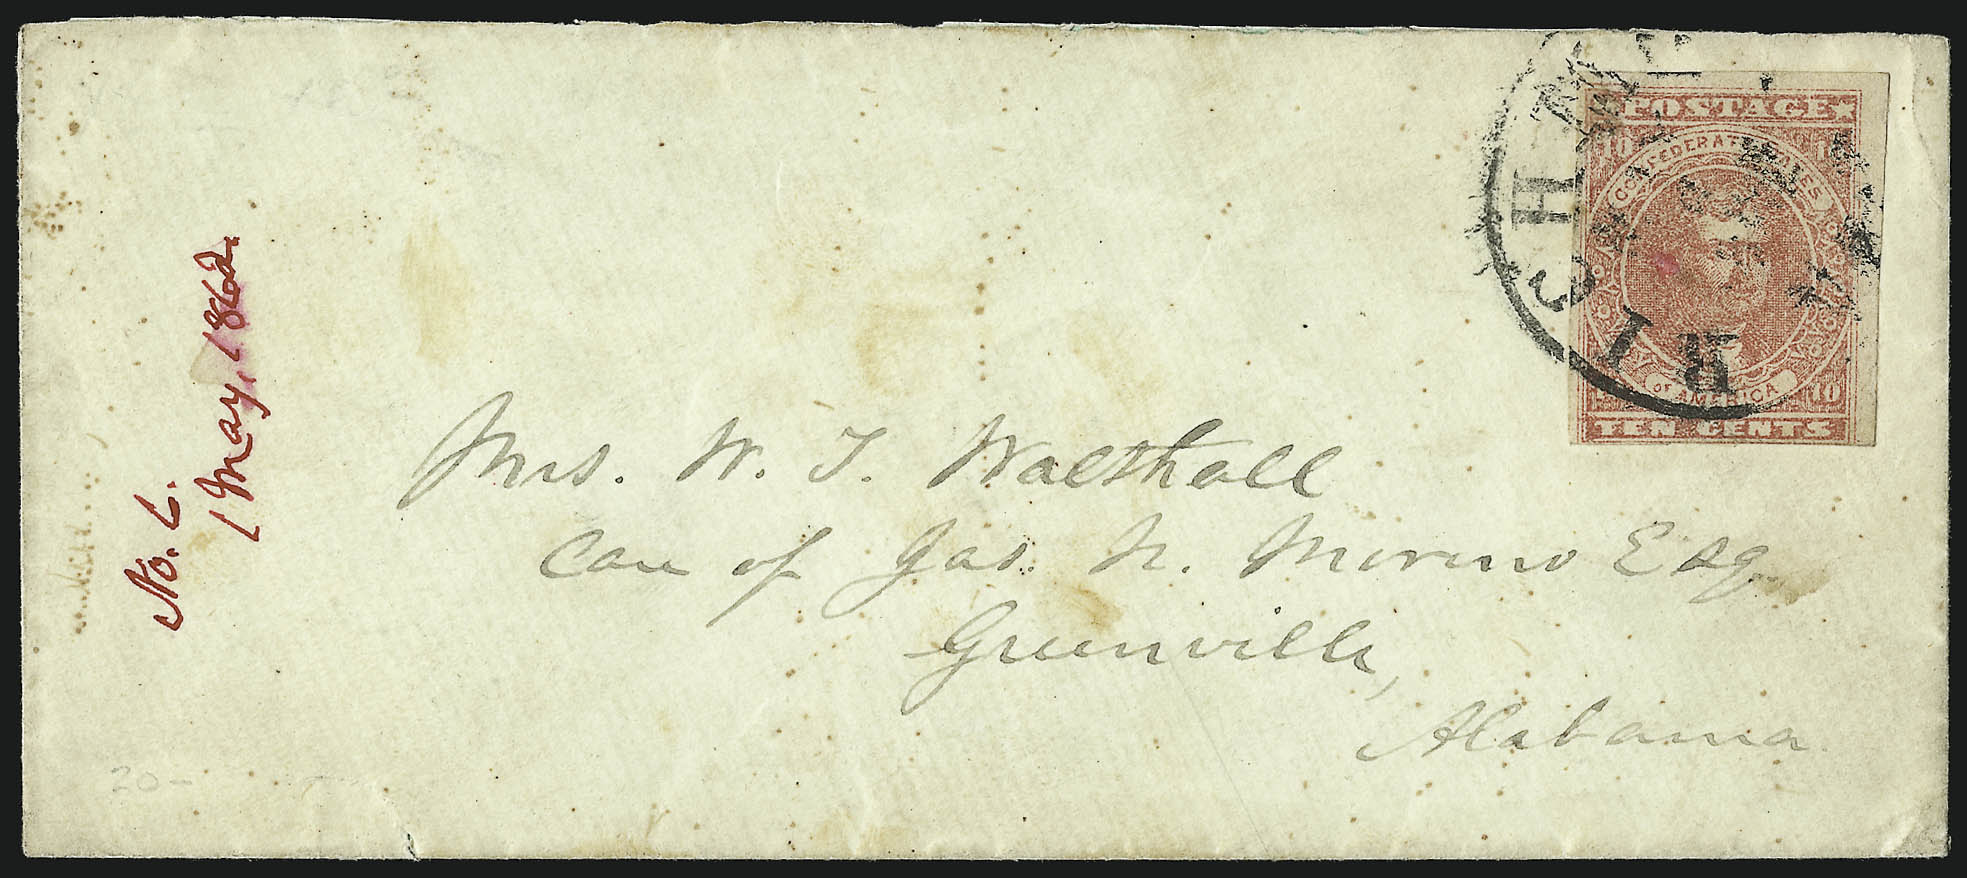 No. 6.
1 May, 1862.
POSTAGE
10
CONFEDERATE STATES
OF AMERICA
10
TEN CENTS
RICHM
Mrs. W. T. Walthall
Care of Jas. N. Moreno Esq
Greenville,
Alabama
20-